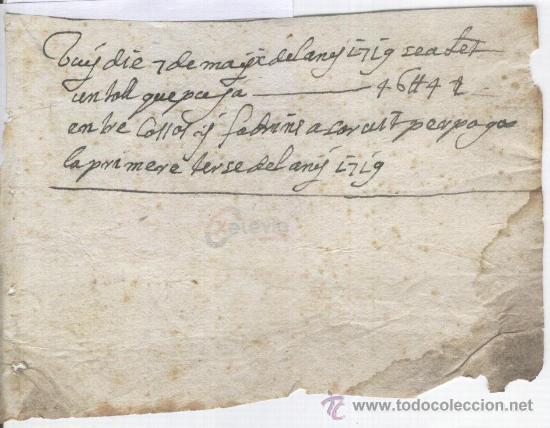 Vuy die 7 de maix del any 1719 sea fet
un toll que puja ——— 46 ll 4 s
entre Cossos y fadrins a sortit per pagar
la primera terse del any 1719
elevio
www.todocoleccion.net